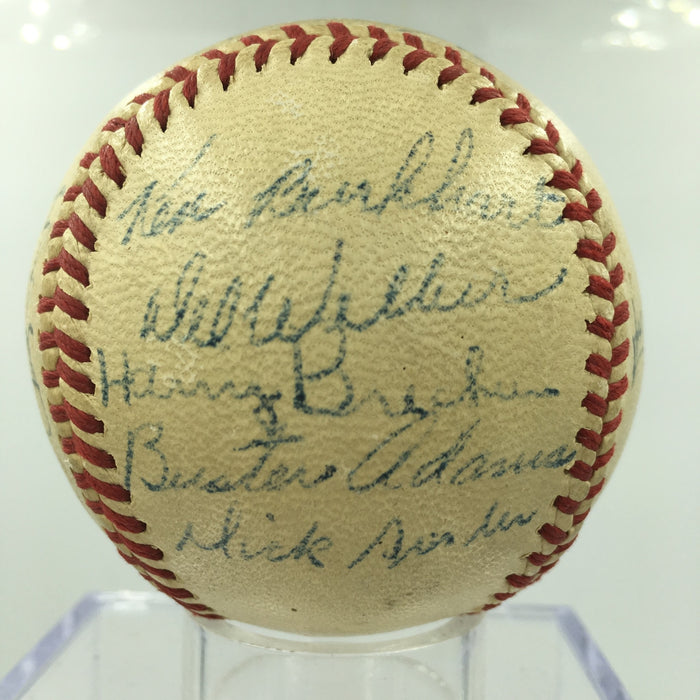 Ken Burkhart
Del Wilber
Harry Brecheen
Buster Adams
Dick